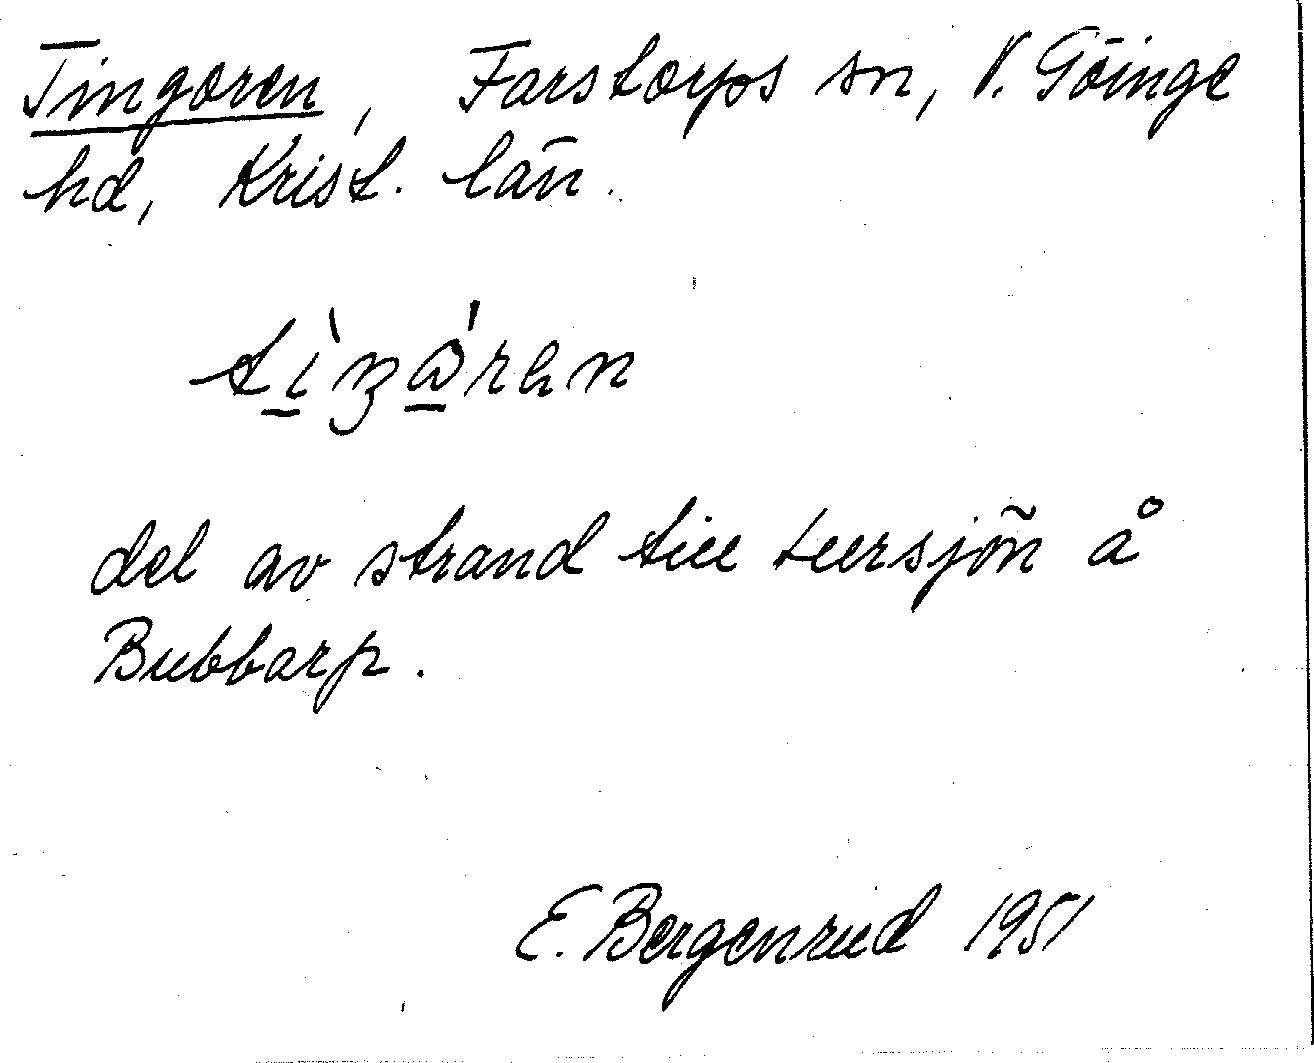 Tingoren, Farstorps sn, V. Göinge
hd, Krist. län.
del av strand till Luursjön å
Bubbarp.
E. Bergenrud 1951